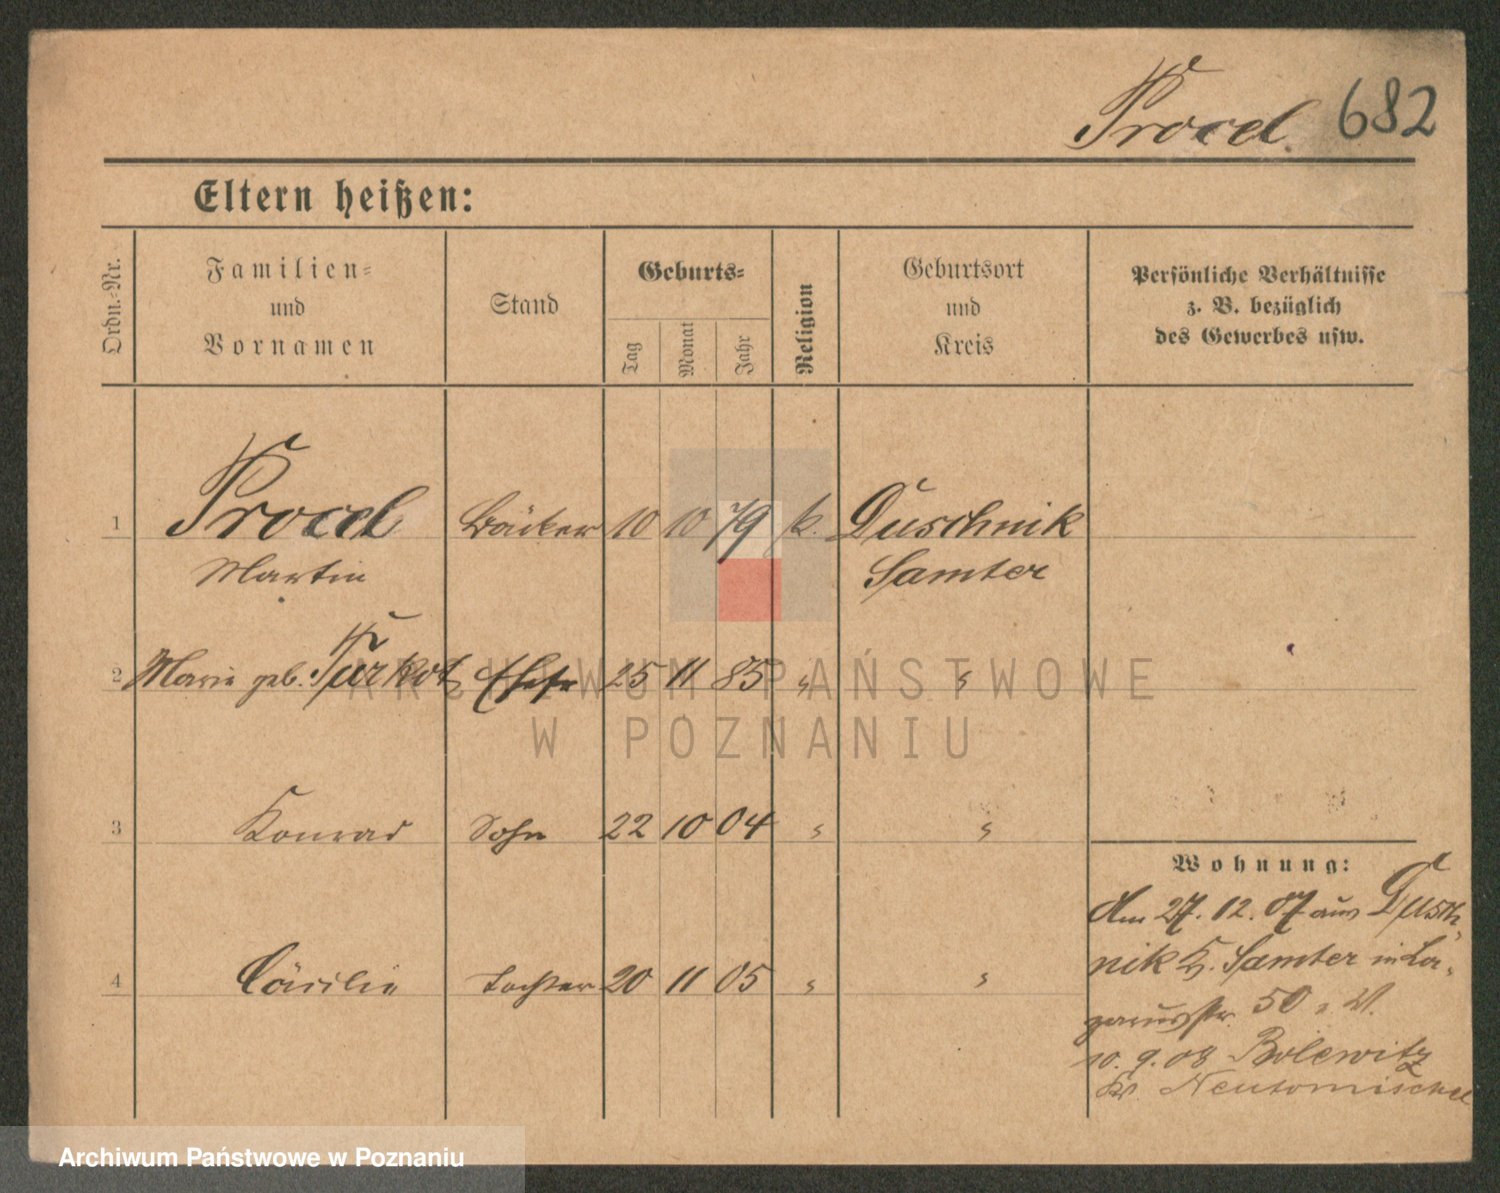 Procel 682
Eltern heißen:
Ordn.-Nr.
Familien-
und
Vornamen
Stand
Geburts-
Tag
Monat
Jahr
Religion
Geburtsort
und
Kreis
Persönliche Verhältnisse
z. B. bezüglich
des Gewerbes usw.
1 Procel Bäcker 10 10 79 k. Duschnik
Martin Samter
2 Marie geb. Turkot Ehefr 25 11 85 " "
3 Konrad Sohn 22 10 04 " "
4 Cäcilie Tochter 20 11 05 " "
Wohnung:
Am 27. 12. 07 aus Dusch-
nik K. Samter in La-
zarusstr. 50 v. W.
10. 9. 08 Bolewitz
Kr. Neutomischel
ARCHIWUM PAŃSTWOWE
W POZNANIU
Archiwum Państwowe w Poznaniu